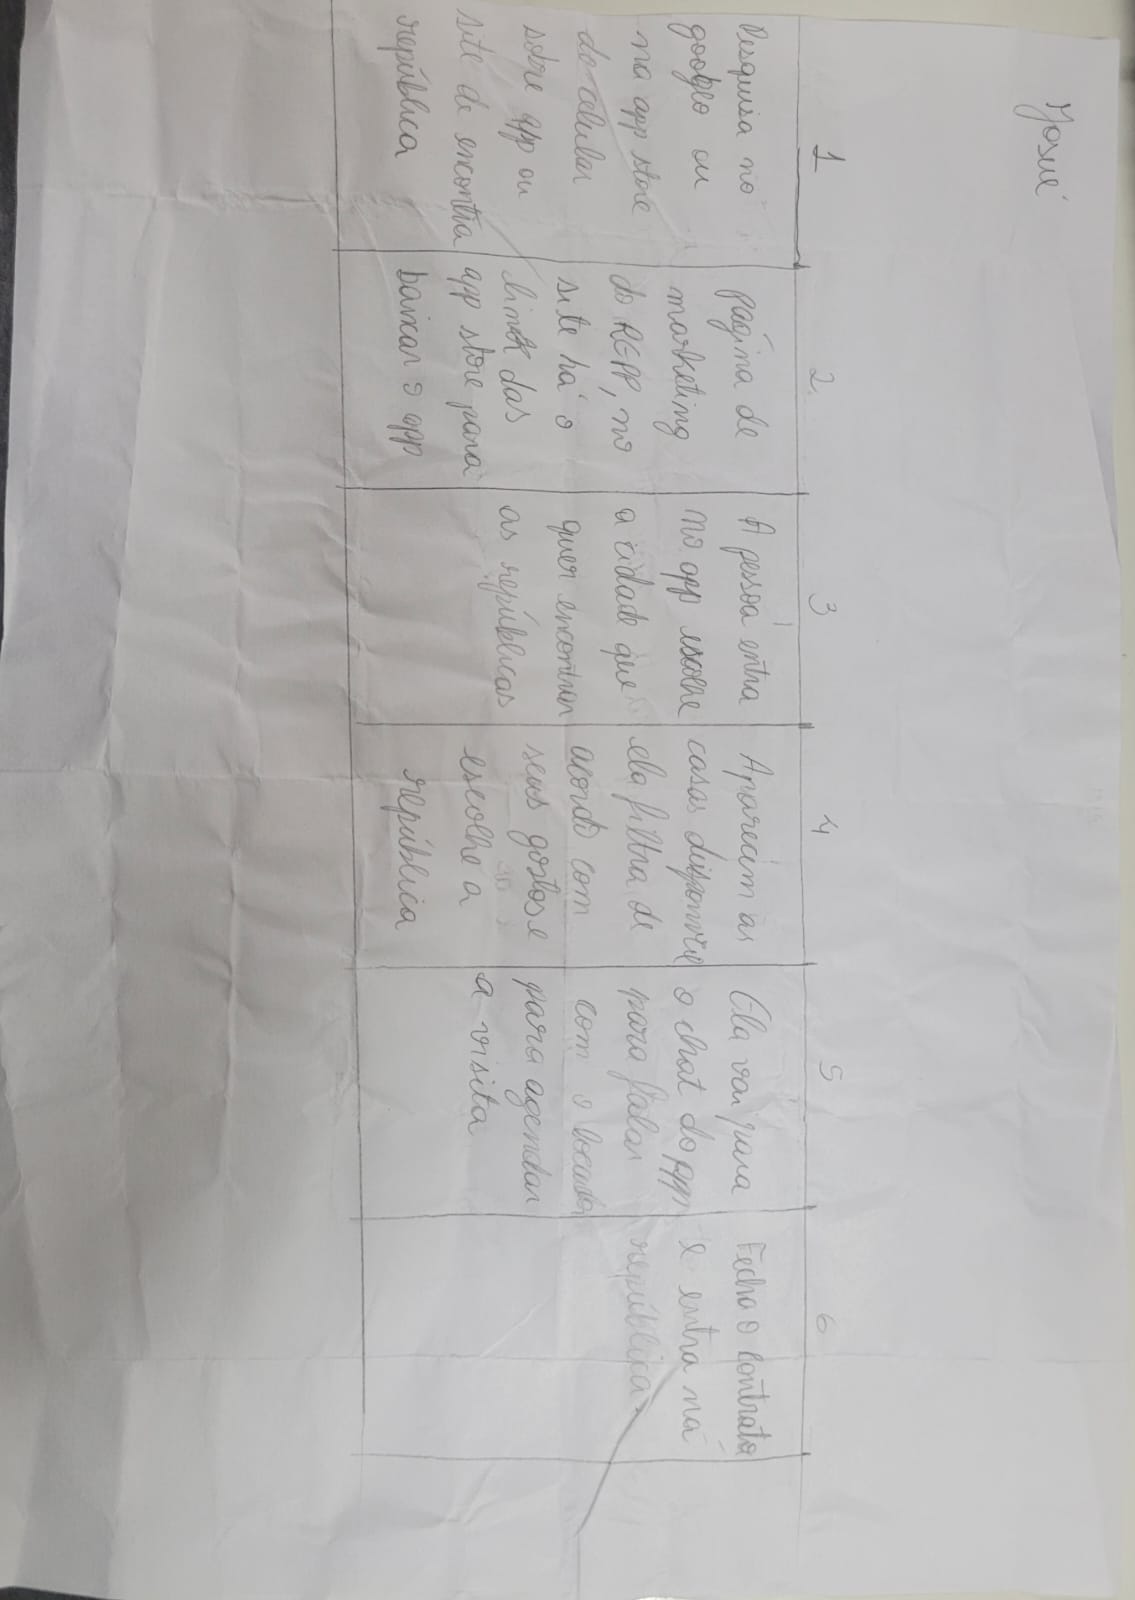 Josué
1
Pesquisa no
google ou
na app store
do celular
sobre app ou
site de encontra
república
2
página de
marketing
do REPP, no
site há o
link das
app store para
baixar o app
3
A pessoa entra
no app escolhe
a cidade que
quer encontrar
as repúblicas
4
Aparecem as
casas disponível
ela filtra de
acordo com
seus gostos e
escolhe a
república
5
Ela vai para
o chat do app
para falar
com o locador
para agendar
a visita
6
Fecha o contrato
e entra na
república